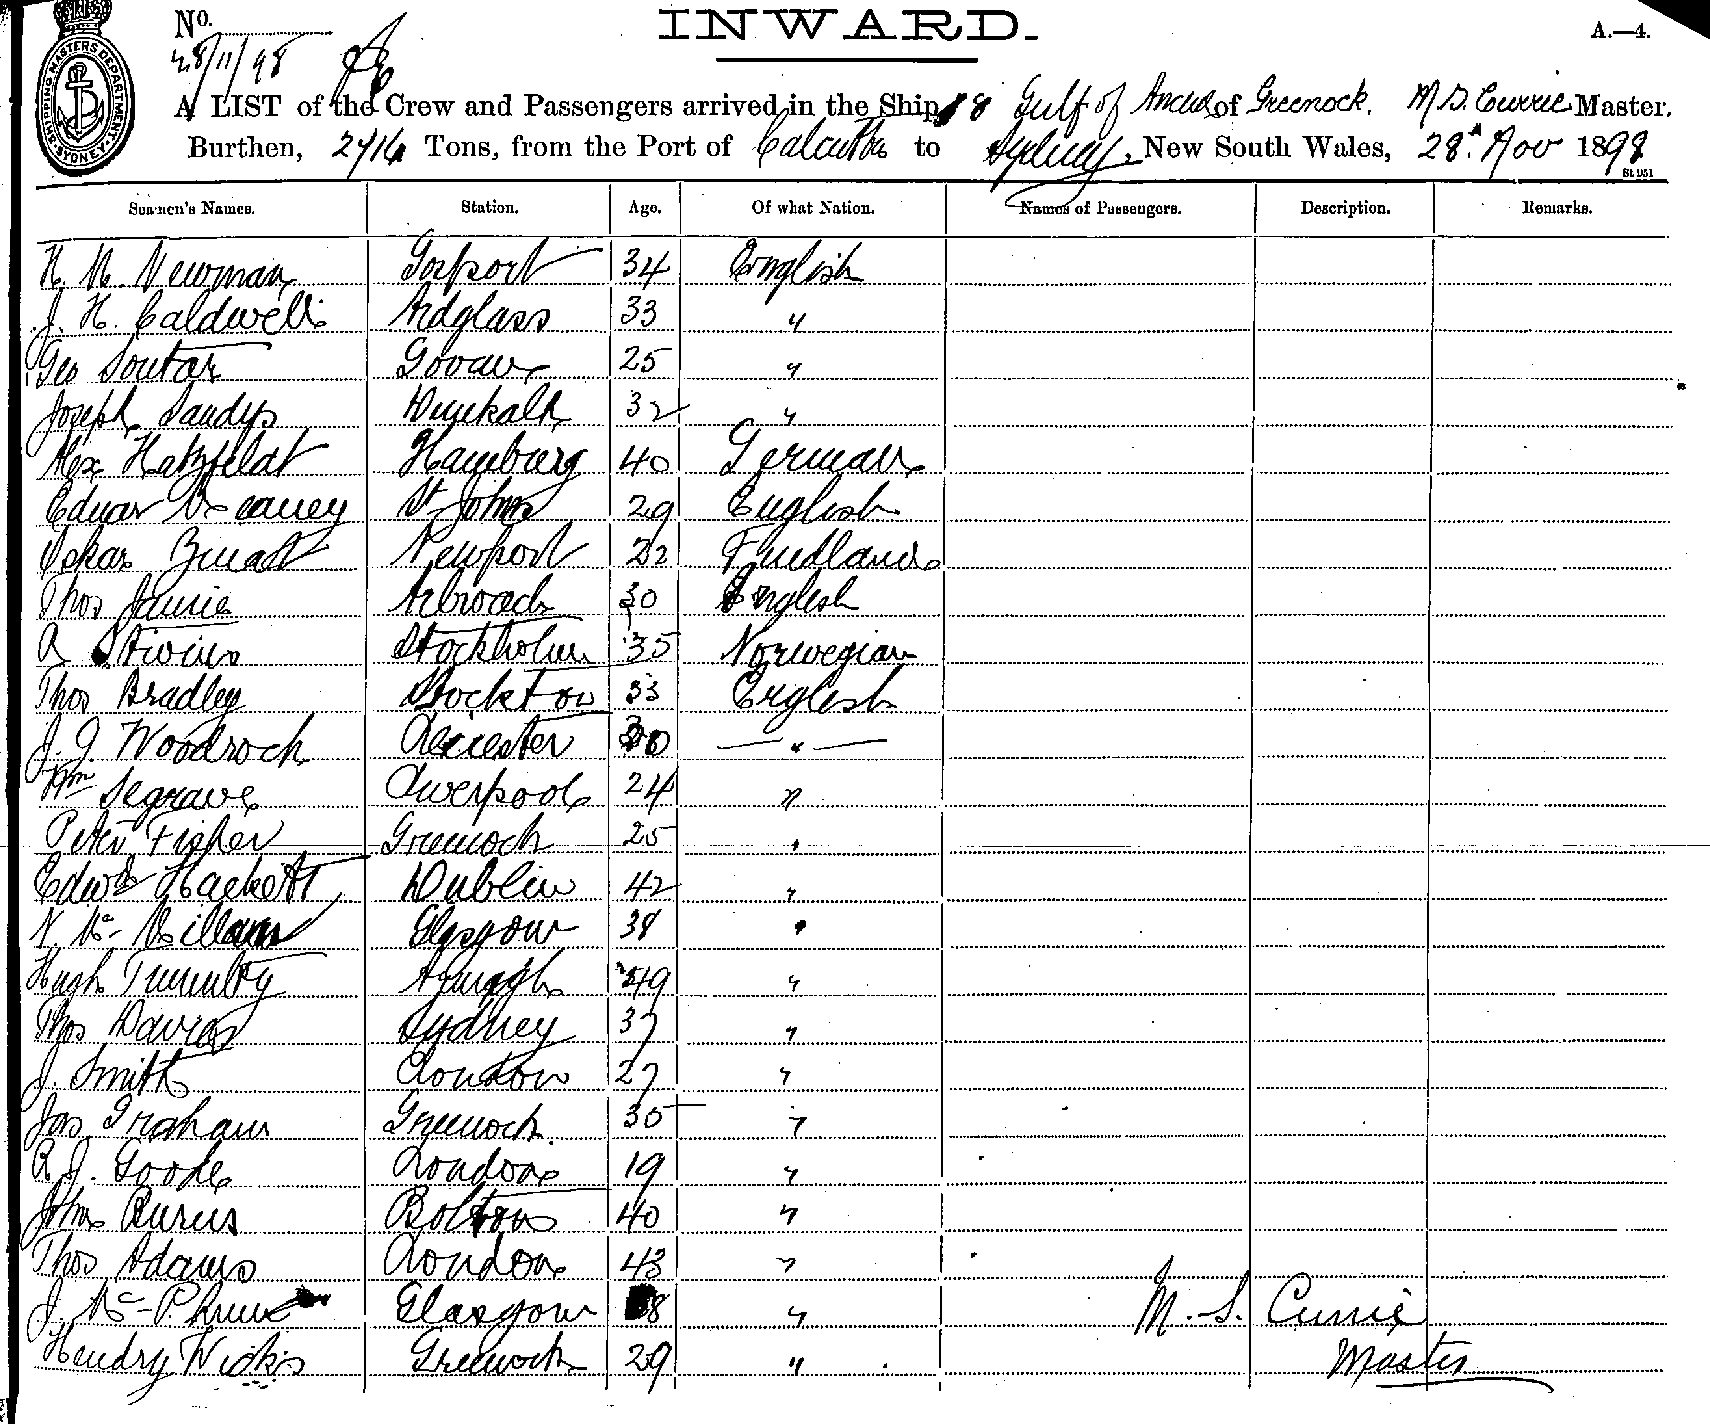 INWARD.
No.
A.—4.
28/11/98
SHIPPING MASTERS DEPARTMENT SYDNEY
A LIST of the Crew and Passengers arrived in the Ship Gulf of Ancud of Greenock. M S. Currie Master.
Burthen, Tons, from the Port of Calcutta to Sydney. New South Wales, 28th Nov 1898
St 951
Seamen's Names. Station. Age. Of what Nation. Names of Passengers. Description. Remarks.
Newman Gosport 34 English
J. H. Caldwell Ardglass 33 "
Geo Soutar Govan 25 "
Joseph Sandys Dundalk 32 "
Alex Hatzfeldt Hamburg 40 German
St Johns 29 English
Oskar Newport 22
Thos Arbroath 30 English
Stockholm 35 Norwegian
Thos Bradley Stockton 33 English
J. J. Woodrock Leicester 30 — " —
Wm Segrave Liverpool 24 "
Peter Fisher Greenock 25 "
Edwd Hackett Dublin 42 "
Glasgow 38 "
Hugh 49 "
Thos Davies Sydney 37 "
J. Smith London 27 "
Jas Graham Greenock. 35 "
R J. Goode London 19 "
Burns Bolton 40 "
Thos Adams London 43 "
J. Glasgow "
M. S. Currie
Hendry Wicks Greenock 29 "
Master